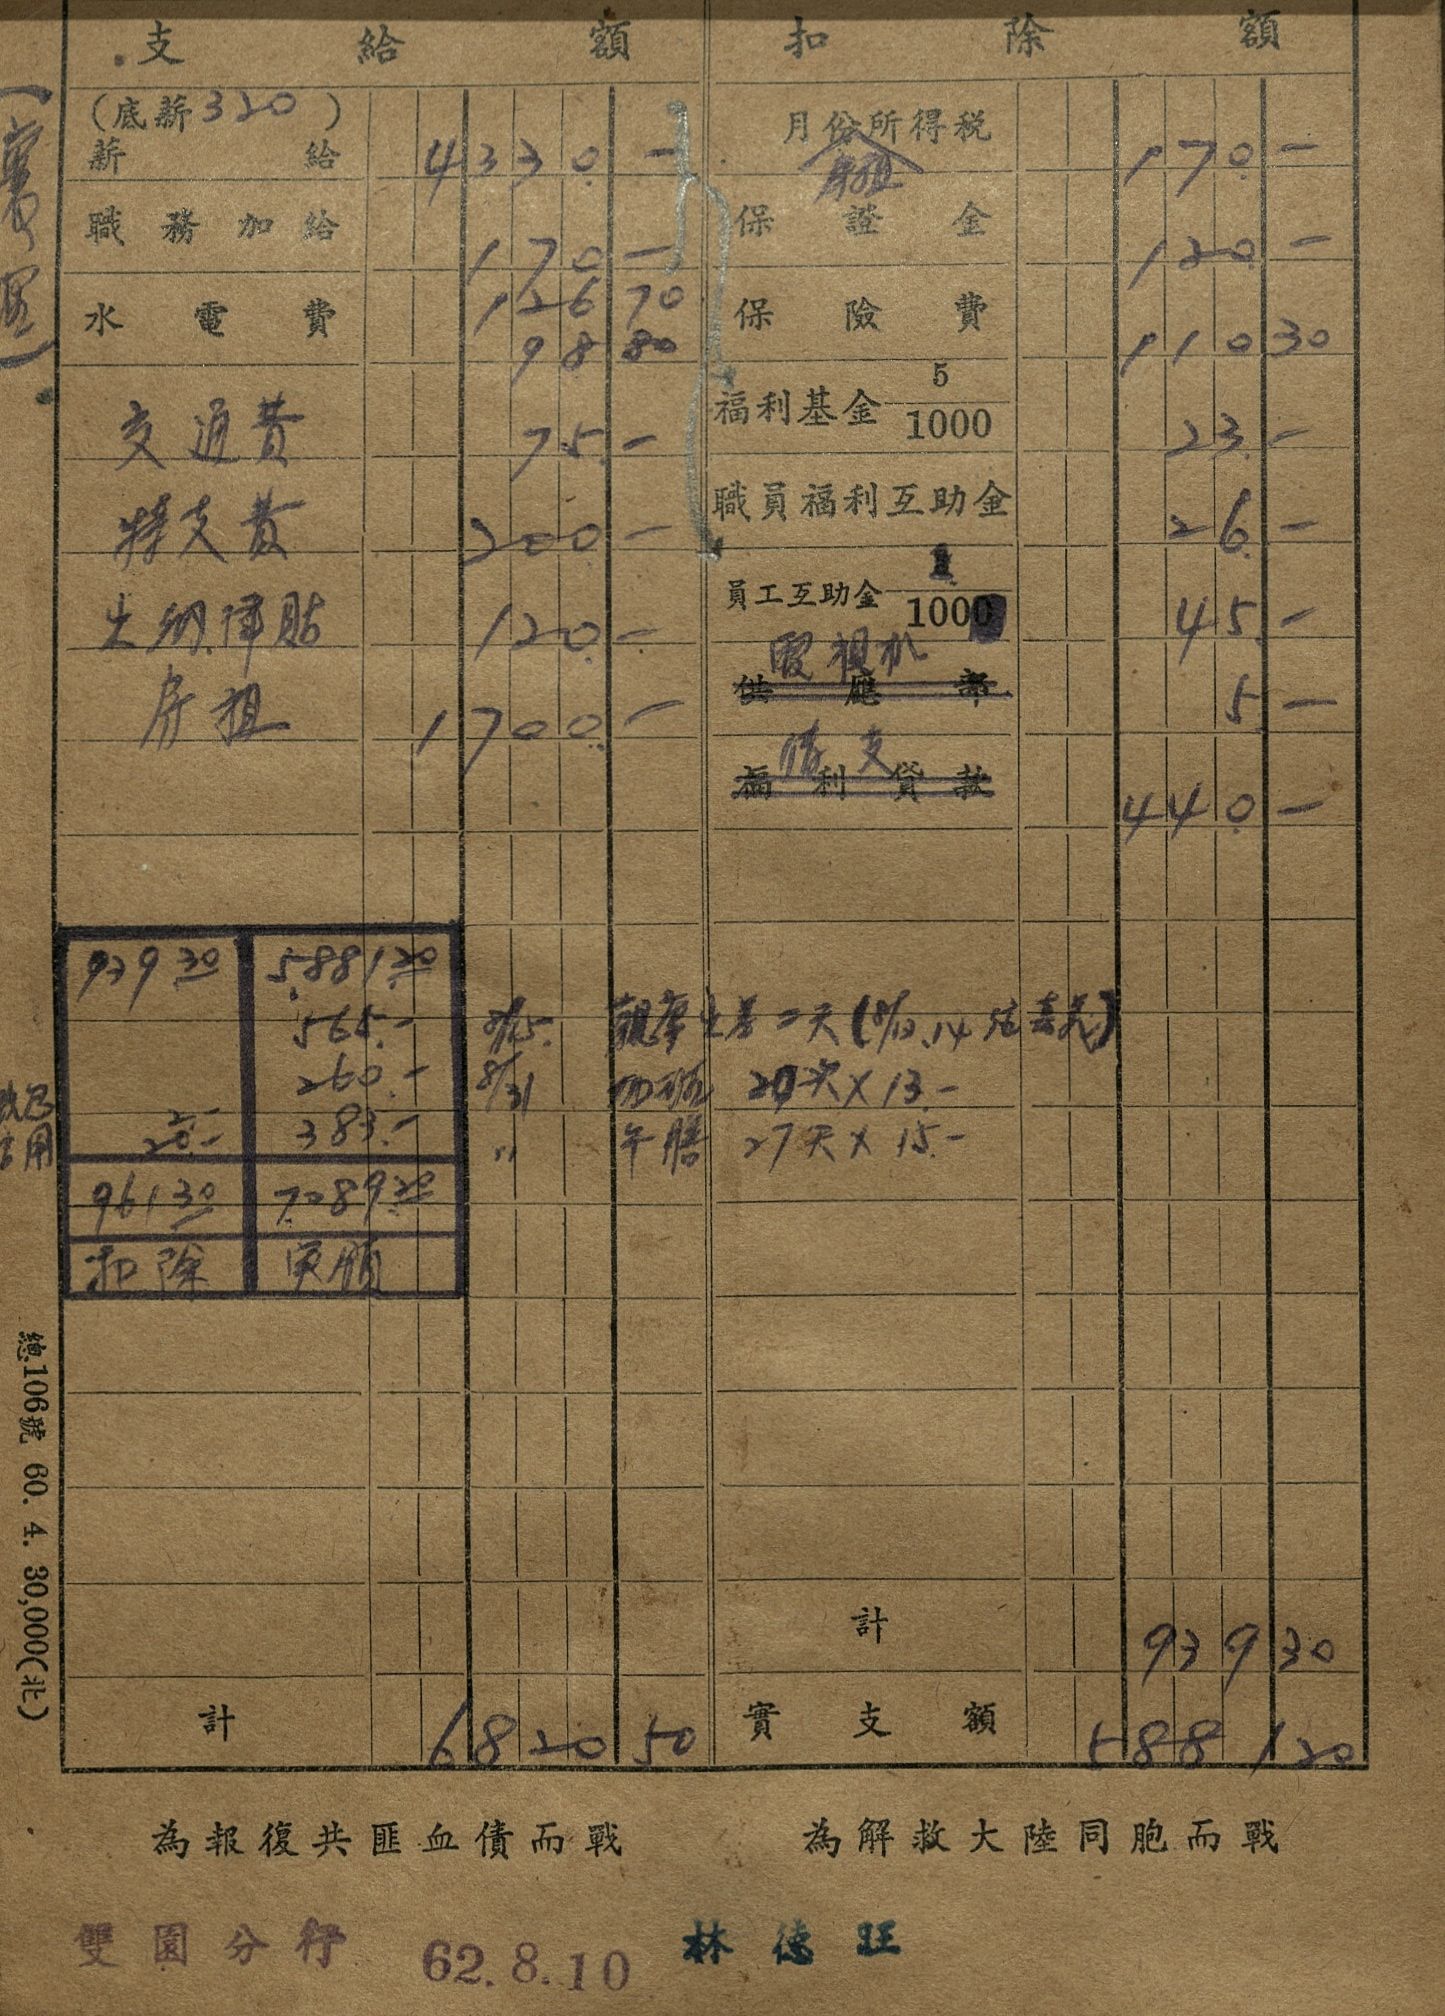 支給額
扣除額
(底薪320)
薪給 4330.-
職務加給 170.-
水電費 126 70
98 80
交通費 75.-
特支費 200.-
出納津貼 120.-
房租 1700.-
月份所得稅 170.-
房租
保證金 120.-
保險費 110 30
福利基金 5/1000 23.-
職員福利互助金 26.-
員工互助金 1/1000 45.-
電視機
供應部 5.-
借支
福利貸款 440.-
939 30 5881.20
565.- 8/15. 觀摩出差二天(8/13、14 嘉義)
260.- 8/31 20次×13.-
2.-
20.- 383.- 〃 午膳 27天×15.-
961 30 7089.20
扣除 實領
計 939 30
計 6820 50
實支額 5881 20
為報復共匪血債而戰
為解救大陸同胞而戰
雙園分行 62.8.10 林德旺
總106號 60. 4. 30,000(北)